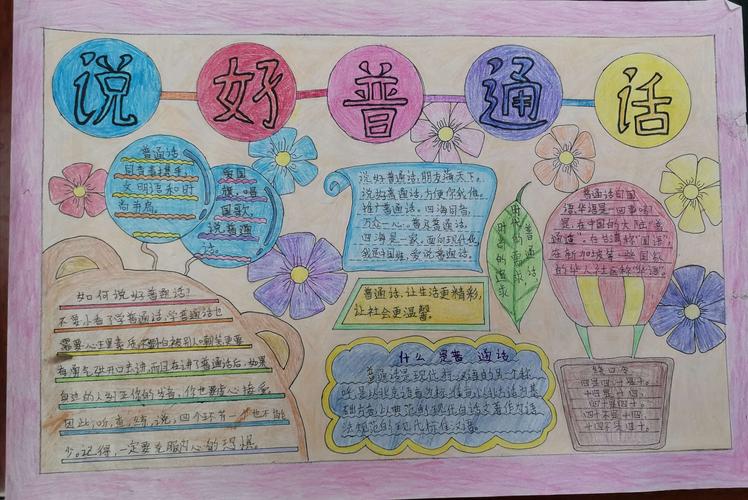 说好普通话
普通话
文明语和时
尚书屋。
爱国
旗,唱
国歌,
说普通
话。
说好普通话,朋友遍天下。
说好普通话,方便你我他。
推广普通话,四海同音,
万众一心。普及普通话,
四海是一家,面向现代化,
我是中国娃,爱说普通话。
普通话
时代的需求
时尚的追求
普通话、国
语、华语是一回事吗?
是,在中国的大陆“普
通话”,在台湾称“国语”
在新加坡等一些国家
的华人社会称“华语”。
普通话,让生活更精彩,
让社会更温馨。
如何说好普通话?
不要小看了学普通话,学普通话也
需要
有勇气张开口去讲,而且在讲了普通话后,如果
自边的人纠正你的发音,你也要虚心接受。
因此,听,查,练,说,四个环节一个也不能
少。记得,一定要克服内心的恐惧。
什么是普通话
普通话是现代标准汉语的另一个称
呼,是以北京语音为标准音,以北方话为基
础方言,以典范的现代白话文著作为语
法规范的现代标准汉语。
绕口令
四是四,十是十,
十四是十四,
四十是四十,
四十不是十四,
十四不是四十。